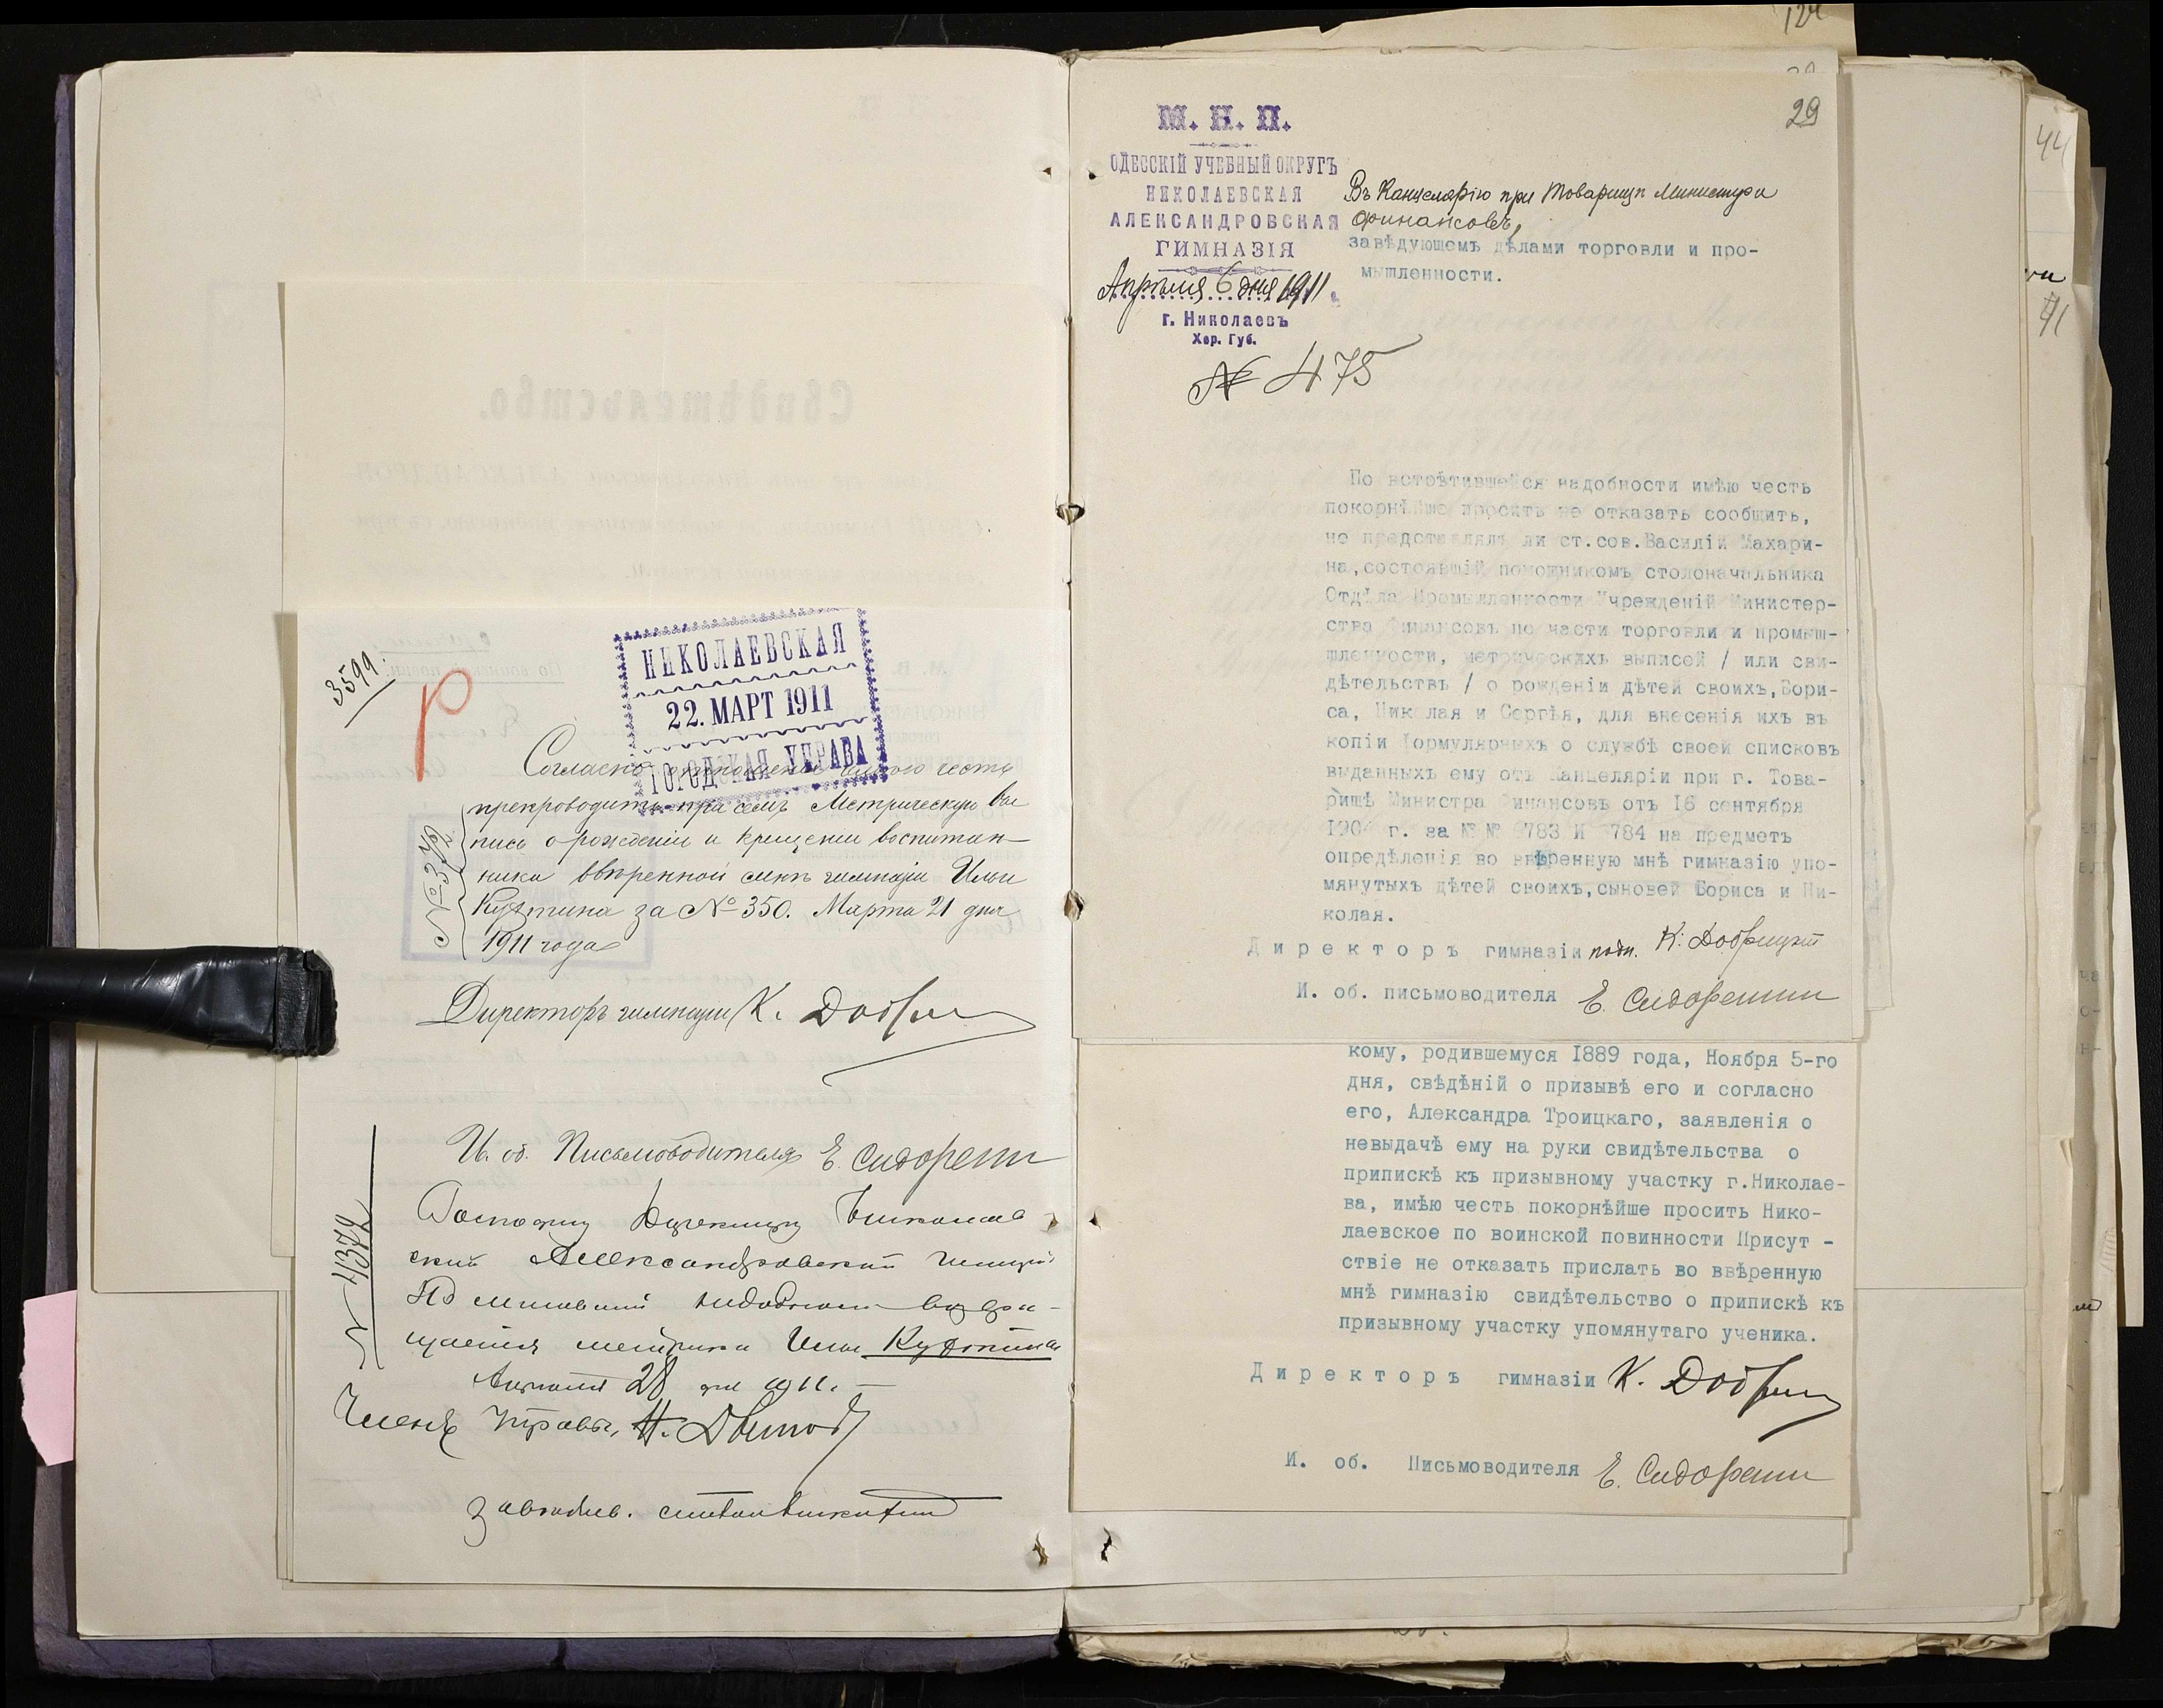 3599.
НИКОЛАЕВСКАЯ
22. МАРТ 1911
ГОРОДСКАЯ УПРАВА
р
Согласно отношенію имѣю честь
препроводить при семъ Метрическую вы
пись о рожденіи и крещеніи воспитан
ника ввѣренной мнѣ гимназіи Ильи
за № 350. Марта 21 дня
1911 года
№ 372
Директоръ гимназіи К.
И. об. Письмоводителя Е.
№ 4372
Господину Директору Николаев
ской Александровской Гимназіи
возвра-
щается метрика Ильи
Апрѣля 28 дня 1911.
Членъ Управы, Н.
124
29
М. Н. П.
ОДЕССКІЙ УЧЕБНЫЙ ОКРУГЪ
НИКОЛАЕВСКАЯ
АЛЕКСАНДРОВСКАЯ
ГИМНАЗІЯ
Апрѣля 6 дня 1911
г. Николаевъ
Хер. Губ.
№ 475
Въ Канцелярію при Товарищѣ Министра
Финансовъ,
завѣдующемъ дѣлами торговли и про-
мышленности.
По встрѣтившейся надобности имѣю честь
покорнѣйше просить не отказать сообщить,
не представлялъ ли ст.сов.Василій Махари-
на,состоявшій помощникомъ столоначальника
Отдѣла Промышленности Учрежденій Министер-
ства Финансовъ по части торговли и промыш-
шленности, метрическихъ выписей / или сви-
дѣтельствъ / о рожденіи дѣтей своихъ,Бори-
са, Николая и Сергѣя, для внесенія ихъ въ
копіи формулярныхъ о службѣ своей списковъ
выданныхъ ему отъ Канцеляріи при г. Това-
рищѣ Министра Финансовъ отъ 16 сентября
г. за №№ 783 И 784 на предметъ
опредѣленія во ввѣренную мнѣ гимназію упо-
мянутыхъ дѣтей своихъ,сыновей Бориса и Ни-
колая.
Директоръ гимназіи подп. К.
И. об. письмоводителя Е.
кому, родившемуся 1889 года, Ноября 5-го
дня, свѣдѣній о призывѣ его и согласно
его, Александра Троицкаго, заявленія о
невыдачѣ ему на руки свидѣтельства о
припискѣ къ призывному участку г.Николае-
ва, имѣю честь покорнѣйше просить Нико-
лаевское по воинской повинности Присут -
ствіе не отказать прислать во ввѣренную
мнѣ гимназію свидѣтельство о припискѣ къ
призывному участку упомянутаго ученика.
Директоръ гимназіи К.
И. об. Письмоводителя Е.
44
41